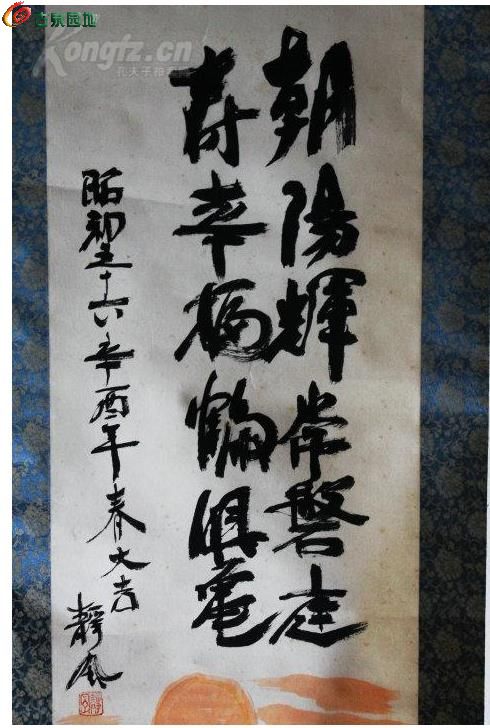 古泉园地
Kongfz.cn
孔夫子拍卖网
朝陽輝常磐
寿幸福鶴亀
昭和五十六辛酉年春大吉
靜風